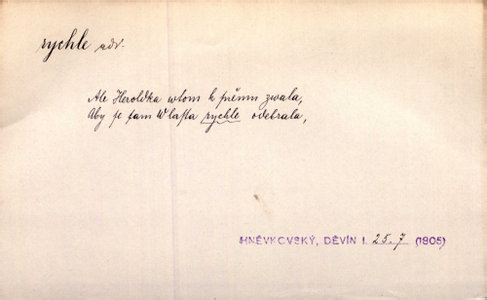 rychle adv.
Ale Heroldka wtom k přěmu zwala,
Aby se tam Wlasta rychle odebrala,
HNĚVKOVSKÝ, DĚVÍN I. 25.7 (1805)